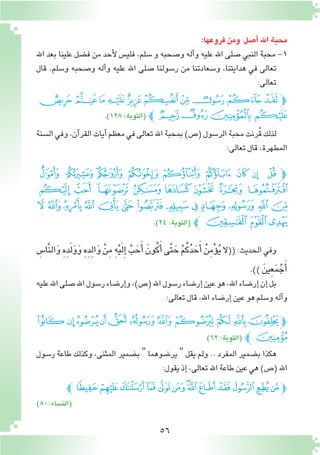 محبة الله أصل ومن فروعها:
١- محبة النبي صلى الله عليه وآله وصحبه و سلم، فليس لأحد من فضل علينا بعد الله
تعالى في هدايتنا، وسعادتنا من رسولنا صلى الله عليه وآله وصحبه وسلم. قال
تعالى:
﴿ لَقَدْ جَاءَكُمْ رَسُولٌ مِّنْ أَنفُسِكُمْ عَزِيزٌ عَلَيْهِ مَا عَنِتُّمْ حَرِيصٌ
عَلَيْكُم بِالْمُؤْمِنِينَ رَءُوفٌ رَّحِيمٌ ﴾ (التوبة: ١٢٨).
ولقد قُرنت محبة الرسول (ص) بمحبة الله تعالى في معظم آيات القرآن، وفي السنة
المطهرة، قال تعالى:
﴿ قُلْ إِن كَانَ آبَاؤُكُمْ وَأَبْنَاؤُكُمْ وَإِخْوَانُكُمْ وَأَزْوَاجُكُمْ وَعَشِيرَتُكُمْ وَأَمْوَالٌ
اقْتَرَفْتُمُوهَا وَتِجَارَةٌ تَخْشَوْنَ كَسَادَهَا وَمَسَاكِنُ تَرْضَوْنَهَا أَحَبَّ إِلَيْكُم
مِّنَ اللَّهِ وَرَسُولِهِ وَجِهَادٍ فِي سَبِيلِهِ فَتَرَبَّصُوا حَتَّىٰ يَأْتِيَ اللَّهُ بِأَمْرِهِ وَاللَّهُ لَا
يَهْدِي الْقَوْمَ الْفَاسِقِينَ ﴾ (التوبة: ٢٤).
وفي الحديث: ((لا يُؤْمِنُ أَحَدُكُمْ حَتَّى أَكُونَ أَحَبَّ إِلَيْهِ مِنْ وَالِدِهِ وَوَلَدِهِ وَالنَّاسِ
أَجْمَعِينَ )).
بل إن إرضاء الله، هو عين إرضاء رسول الله (ص)، وإرضاء رسول الله صلى الله عليه
وآله وسلم هو عين إرضاء الله، قال تعالى:
﴿ يَحْلِفُونَ بِاللَّهِ لَكُمْ لِيُرْضُوكُمْ وَاللَّهُ وَرَسُولُهُ أَحَقُّ أَن يُرْضُوهُ إِن كَانُوا
مُؤْمِنِينَ ﴾ (التوبة: ٦٢)
هكذا بضمير المفرد .. ولم يقل " يرضوهما " بضمير المثنى، وكذلك طاعة رسول
الله (ص) هي عين طاعة الله تعالى، إذ يقول:
﴿ مَّن يُطِعِ الرَّسُولَ فَقَدْ أَطَاعَ اللَّهَ وَمَن تَوَلَّىٰ فَمَا أَرْسَلْنَاكَ عَلَيْهِمْ حَفِيظًا ﴾
(النساء: ٨٠)
٥٦